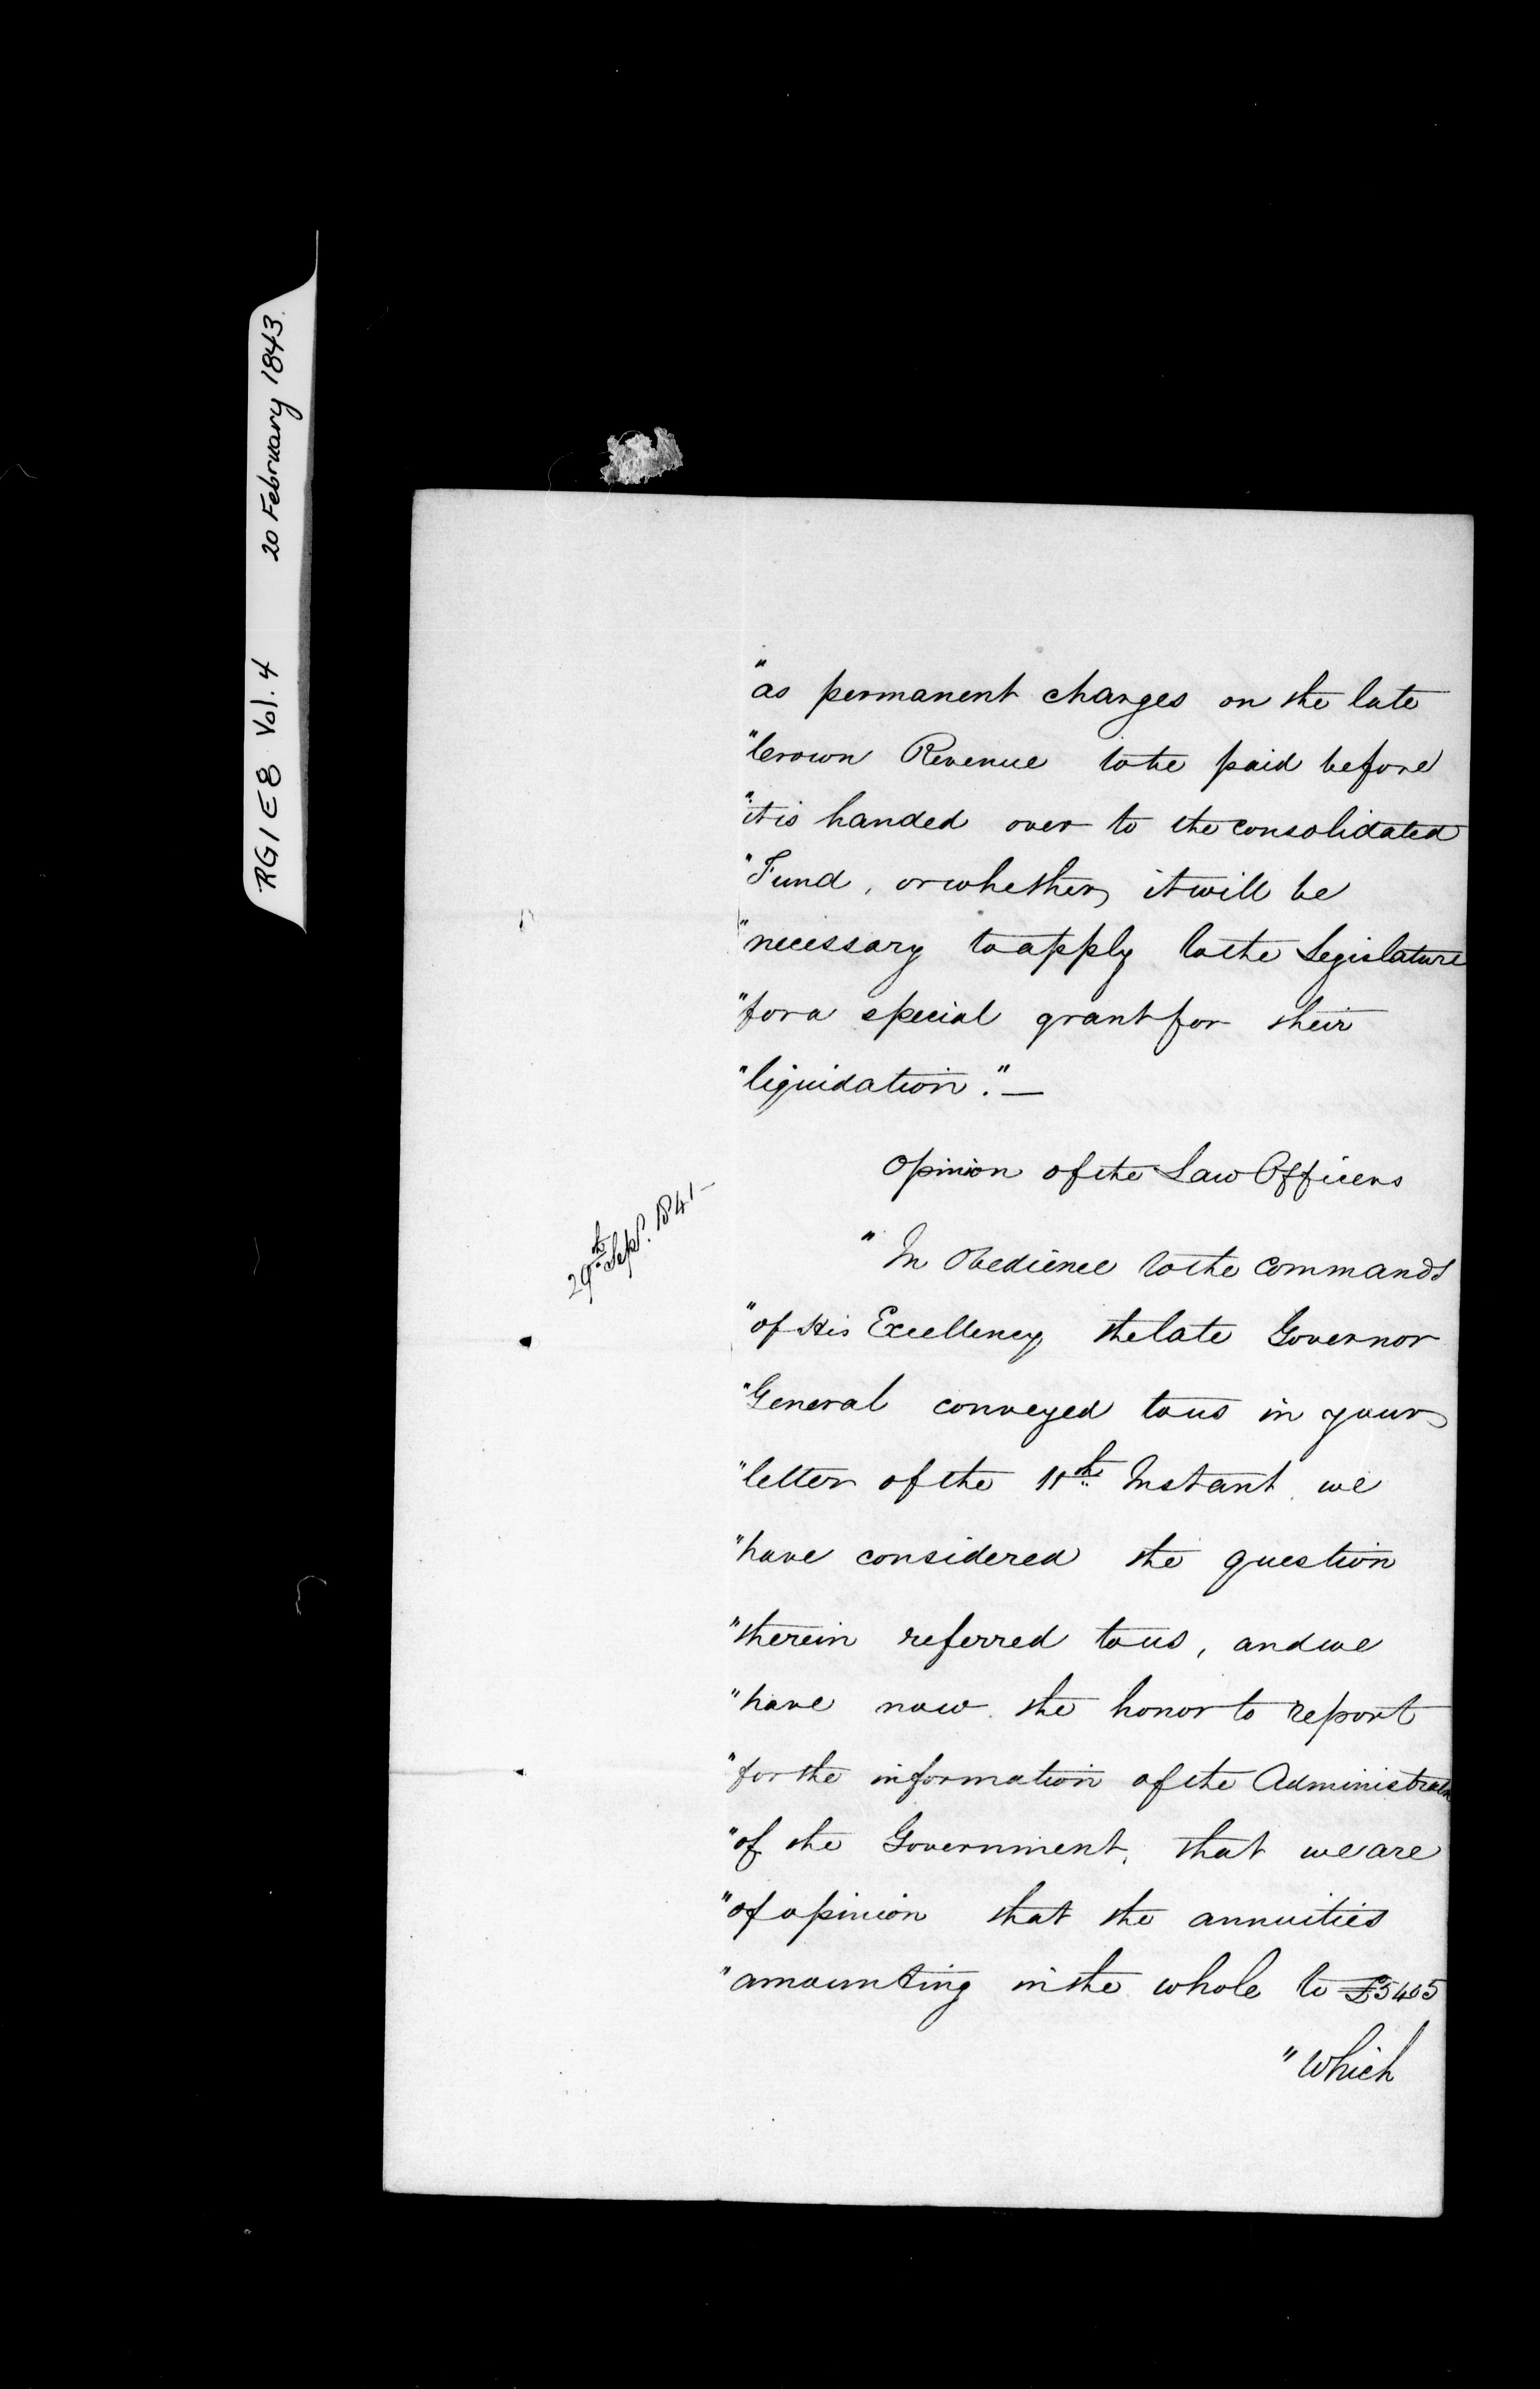 RG1 E8 Vol. 4 20 February 1843.
"as permanent charges on the late
"Crown Revenue to be paid before
"it is handed over to the consolidated
"Fund, or whether it will be
"necessary to apply to the Legislature
"for a special grant for their
"liquidation." —
Opinion of the Law Officers
29th Sept. 1841 —
"In Obedience to the Commands
"of His Excellency the late Governor
"General conveyed to us in your
"letter of the 11th Instant we
"have considered the question
"therein referred to us, and we
"have now the honor to report
"for the information of the Administrator
"of the Government, that we are
"of opinion that the annuities
"amounting in the whole to £5405
"Which